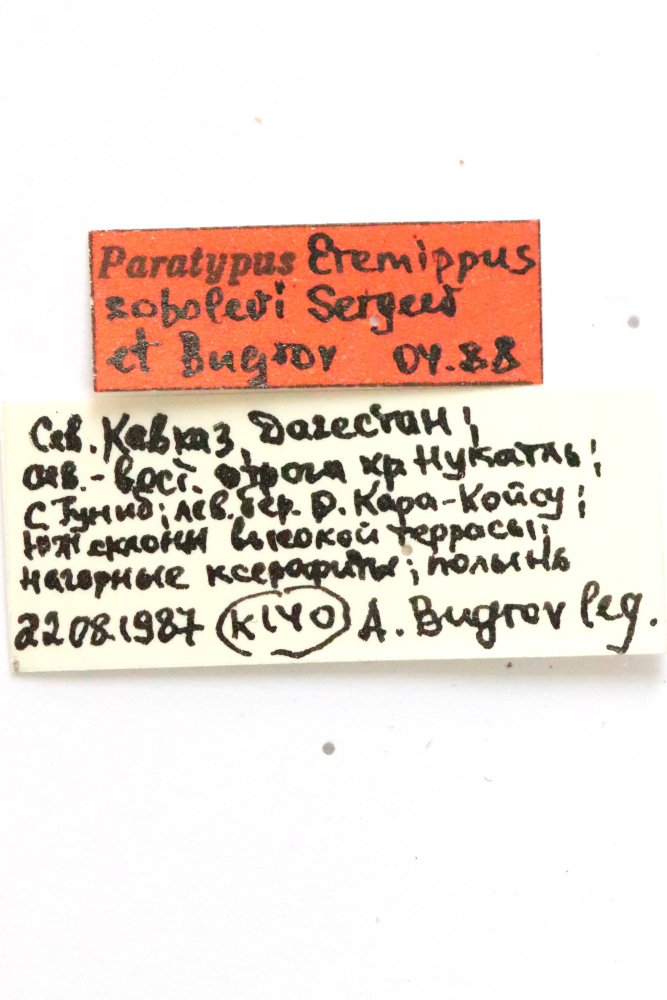 Paratypus Eremippus
sobolevi Sergeev
et Bugrov 04.88
Сев. Кавказ, Дагестан;
сев.-вост. отроги хр. Нукатль;
с Гуниб; лев. бер. р. Кара-Койсу;
юж склоны высокой террасы;
нагорные ксерофиты; полынь
22081987 K140 A. Bugrov leg.